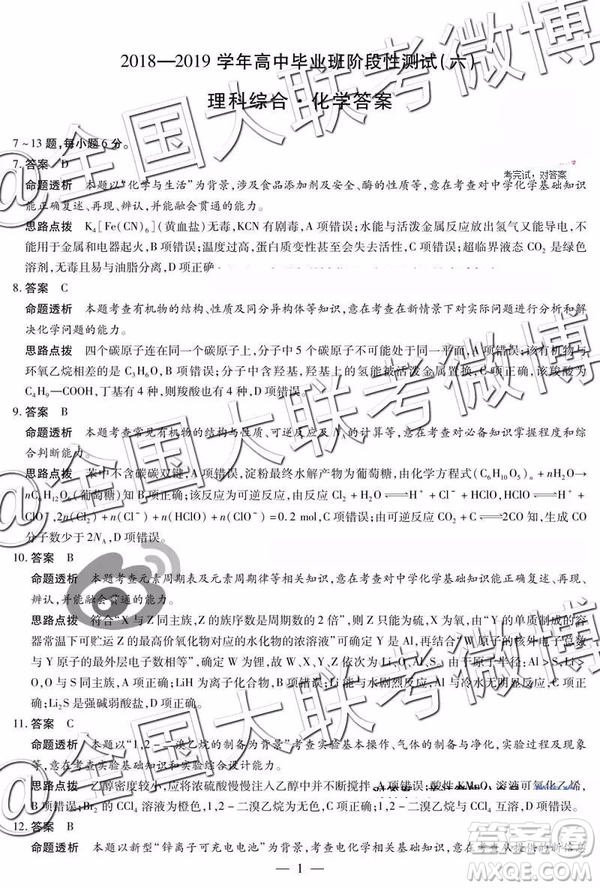 2018—2019学年高中毕业班阶段性测试(六)
理科综合·化学答案
7~13题,每小题6分。
7. 答案 D
考完试,对答案
命题透析 本题以“化学与生活”为背景,涉及食品添加剂、酶的性质等,意在考查对中学化学基础知识
能正确复述、再现、辨认,并能融会贯通的能力。
思路点拨 K₄[Fe(CN)₆](黄血盐)无毒,KCN有剧毒,A项错误;水能与活泼金属反应放出氢气又能导电,不
能用于金属和电器起火,B项错误;高温、重金属盐,蛋白质变性甚至会失去活性,C项错误;超临界液态CO₂是绿色
溶剂,无毒且易与油脂分离,D项正确。
8. 答案 C
命题透析 本题考查有机物的结构、性质及同分异构体等知识,意在考查在新情景下对实际问题进行分析和解
决化学问题的能力。
思路点拨 四个碳原子连在同一个碳原子上,分子中5个碳原子不可能处于同一平面,A项错误;该有机物与
环氧乙烷的
B项错误;分子中含羟基,羟基上的氢能被活泼金属
C项正确;
C₄H₉—COOH,丁基有4种,则羧酸有4种,D项错误。
9. 答案 B
命题透析 本题考查常见有机物的结构与性质,可逆反应及
的计算等,意在考查对必备知识掌握程度和综
合判断能力。
思路点拨 苯中不含碳碳双键,A项错误,淀粉最终水解为葡萄糖,由化学方程式(C₆H₁₀O₅)ₙ+nH₂O→
nC₆H₁₂O₆(葡萄糖)知B项正确;该反应为可逆反应,由反应Cl₂+H₂O⇌H⁺+Cl⁻+HClO、HClO⇌H⁺+
ClO⁻,2n(Cl₂)+n(Cl⁻)+n(ClO⁻)+n(HClO)=0.2 mol,C项错误;
生成CO
分子数少于2Nₐ,D项错误。
10. 答案 B
命题透析 本题考查元素周期表及元素周期律等相关知识,意在考查对中学化学基础知识能正确复述、再现、
辨认,并能融会贯通的能力。
思路点拨 符合“X与Z同主族,Z的族序数是周期数的2倍”,则Z为硫,X为氧,由“Y的单质制成的容
器常温下可贮运Z的最高价氧化物对应的水化物的浓溶液”可确定Y是Al,再结合“W原子的
与Y原子的最外层电子数相等”,可确定W为锂,故W、X、Y、Z依次为Li、O、Al、S。原子半径:Al>S、Li>
O,A项错误;LiH为离子化合物,B项正确;
C项错
误;Li₂S是强碱弱酸盐,D项正确。
11. 答案 C
命题透析 本题以“1,2-二溴乙烷的制备为背景”考查实验基本操作,气体的制备与净化,实验过程及现象
等,意在考查实验与探究能力。
思路点拨 乙醇与浓硫酸混合,应将浓硫酸慢慢注入乙醇中并不断搅拌,A项错误;酸性KMnO₄溶液可氧化乙烯,
B项错误;Br₂的CCl₄溶液为橙色,1,2-二溴乙烷的CCl₄溶液为无色,C项正确;
12. 答案 B
命题透析 本题以新型“锌离子可充电电池”为背景,考查电化学相关知识,意在考查从提供的新信息
— 1 —
@全国大联考微博
答案圈
MXQE.COM